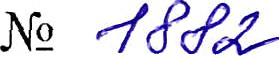 № 1882